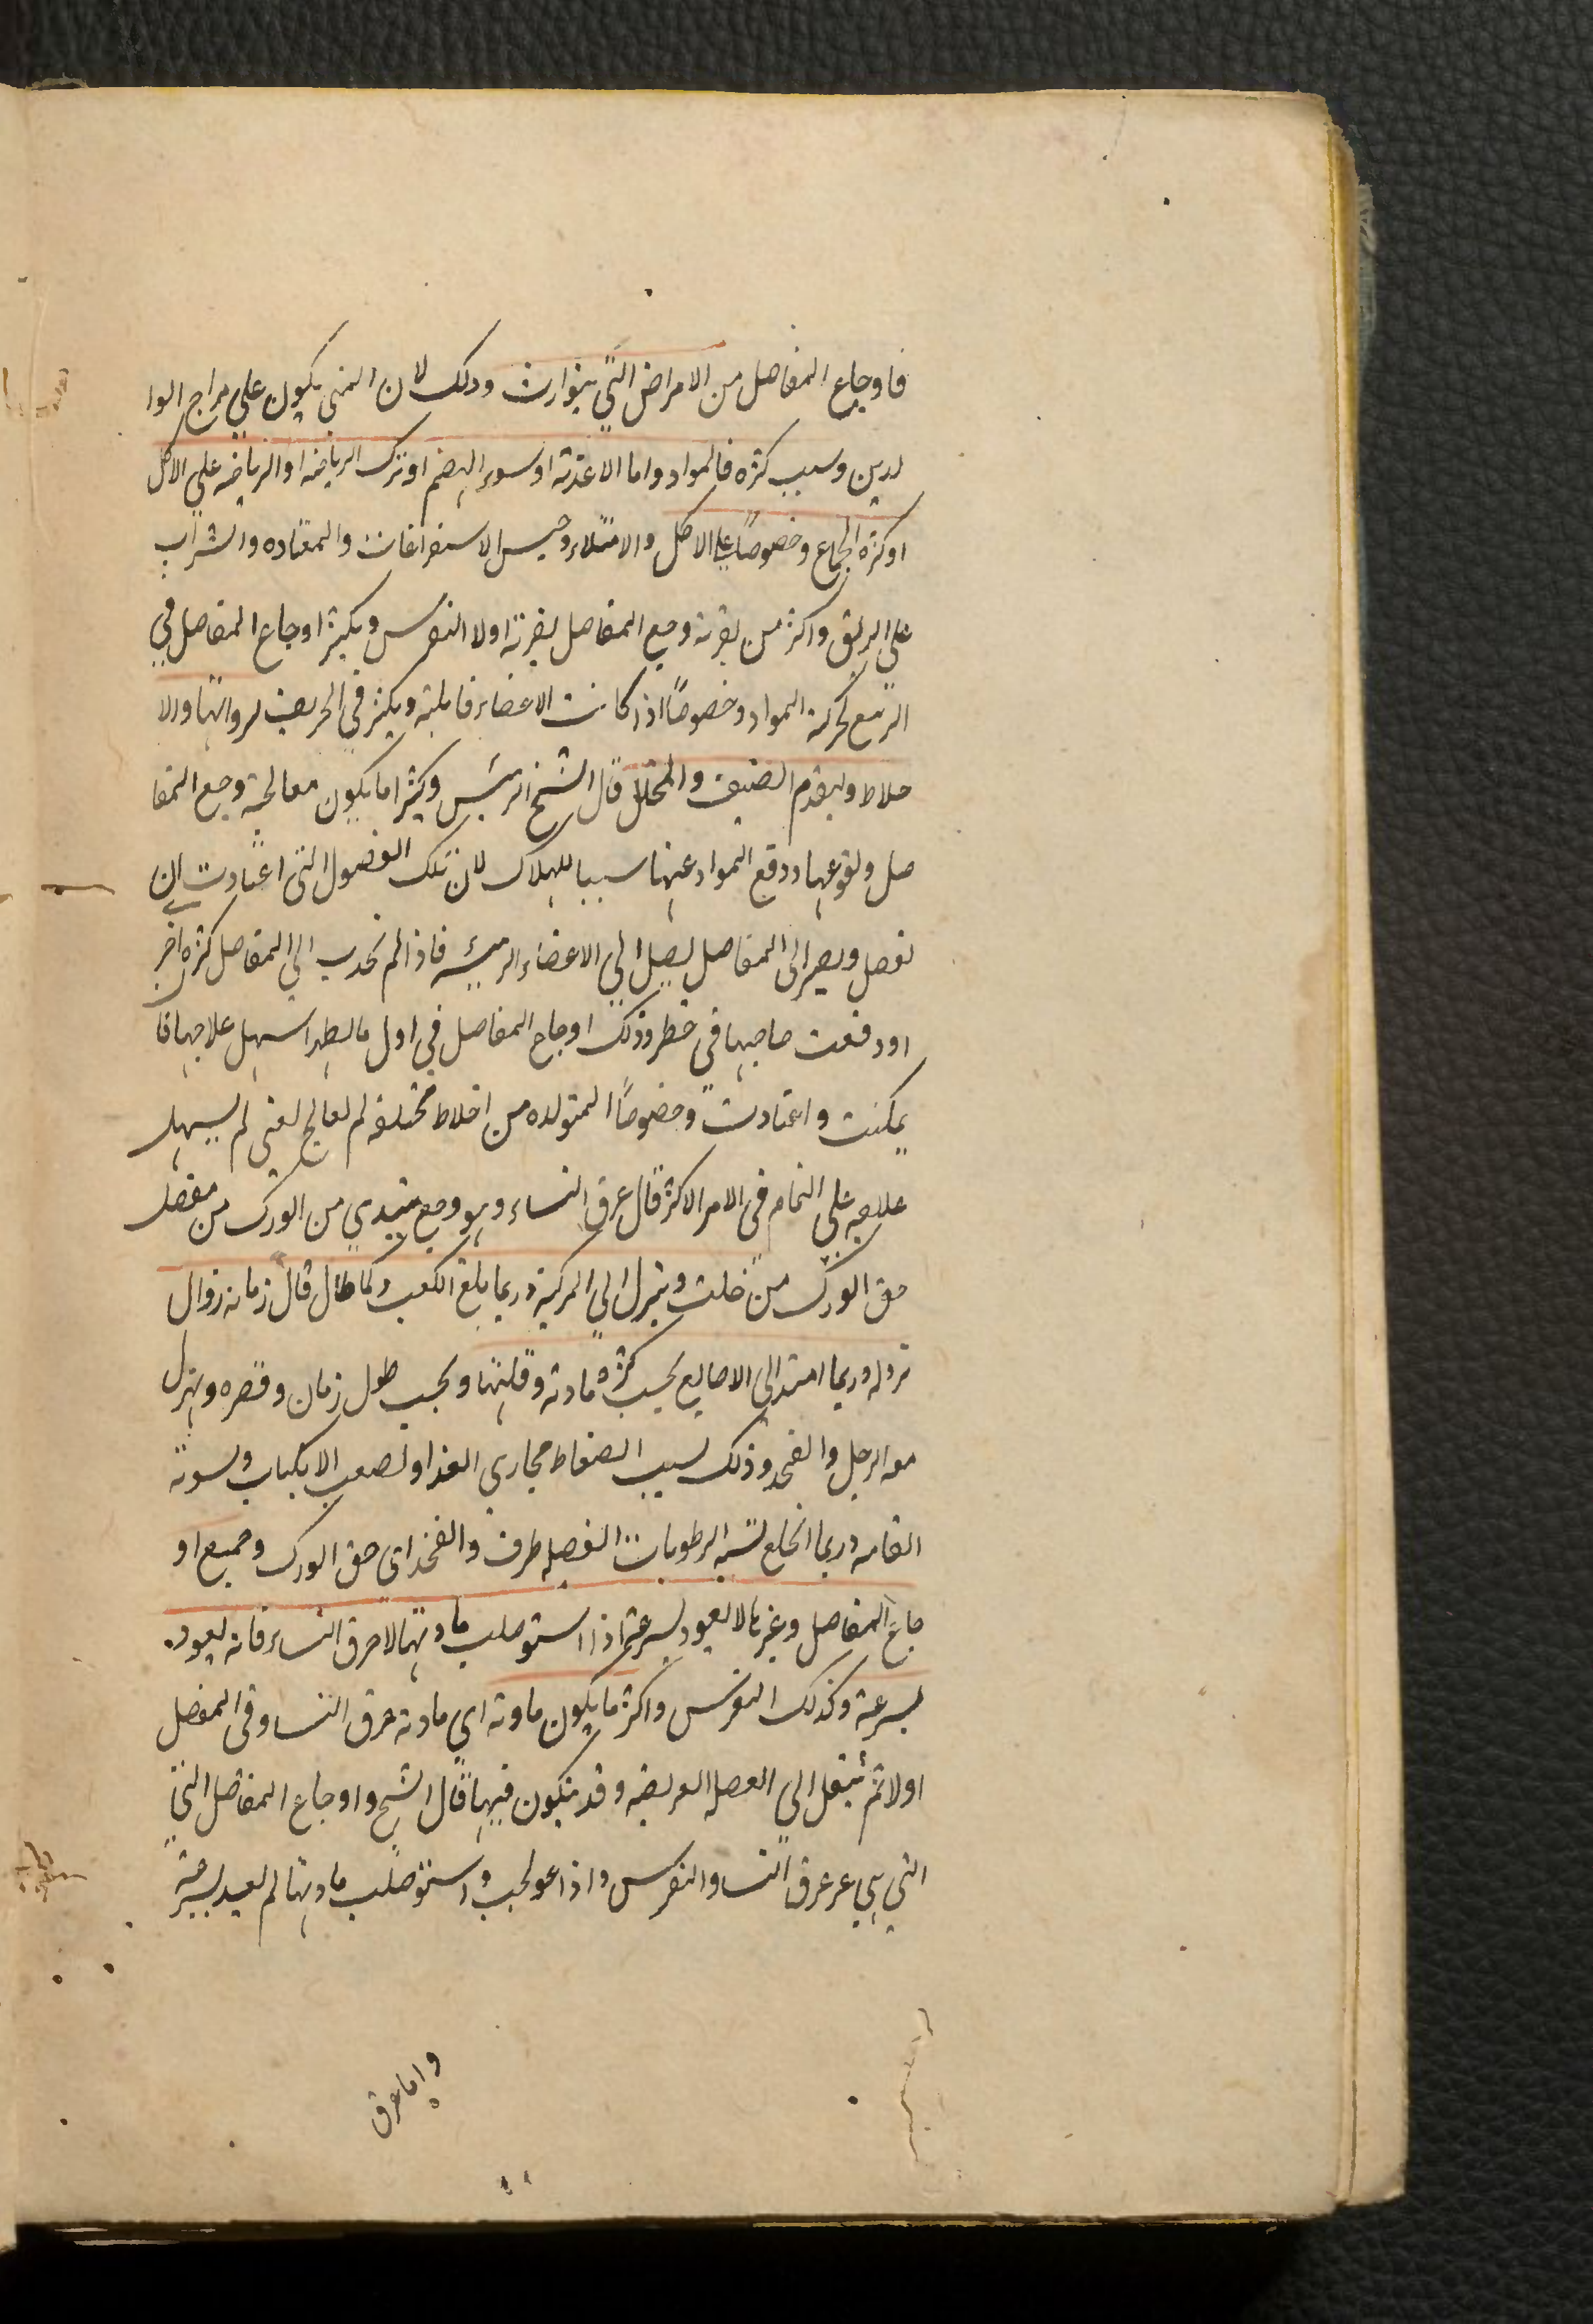 فاوجاع المفاصل من الامراض التي يتوارث وذلك لان المني يكون علي مزاج الوا
لدين وسبب كثره فالمواد واما الاغذية او سوء الهضم او ترك الرياضه او الرياضه علي الاكل
او كثره الجماع وخصوصًا علي الاكل والامتلاء وحبس الاستفراغات والمعتاده والشراب
علي الريق واكثر من يعرنه وجع المفاصل يعرنه اولا النقرس ويكثر اوجاع المفاصل في
الربيع لحركة المواد وخصوصًا اذا كانت الاعضاء قابلته ويكثر في الخريف لرداتها ورلا
خلاط ولتقدم الصيف والمحلل قال الشيخ الرئيس وكثيرا ما يكون معالجة وجع المفا
صل ولقوعها ودفع المواد عنها سببا للهلاك لان تلك الفضول التي اعتادت ان
تفصل ويصير الي المفاصل يصل الي الاعضاء الرئيسه فاذا لم تحدب الي المفاصل كثره اخر
اودفعت صاحبها في خطر وذلك اوجاع المفاصل في اول ما يظهر اسهل علاجها فا
يمكنت واعتادت وخصوصًا المتولده من اخلاط مختلفه لم لعالج لعني لم يسهل
علاجه علي التمام في الامر الاكثر قال عرق النساء وهو وجع يبتدي من الورك من مفصل
حق الورك من خلت وينزل الي الركبة وربما بلغ الكعب وكما طال قال زمانه زوال
نزوله وربما امتد الي الاصابع بحسب كثرة مادته وقلتها وبحسب طول زمان وقصره ويهزل
معه الرجل والفخذ وذلك لسبب الضغاط مجاري الغذا ولصعب الانكباب ولسوية
القامه وربما انخلع لشبه الرطوبات الفصيله طرف والفخذ اي حق الورك وجميع او
جاع المفاصل وغيرها لا يعود لسرعة اذا استوصلب مادتها لا عرق النساء فانه ليعود
لسرعة وكذلك النقرس واكثر ما يكون مادته اي مادته عرق النساء وفي المفصل
اولا ثم ينتقل الي العصل العريضه وقد يتكون فيها قال الشيخ واوجاع المفاصل التي
التي هي عر عرق النسا والنقرس واذا عولجب واستوصلب مادتها لم لعيد لسرعة
واما عرق